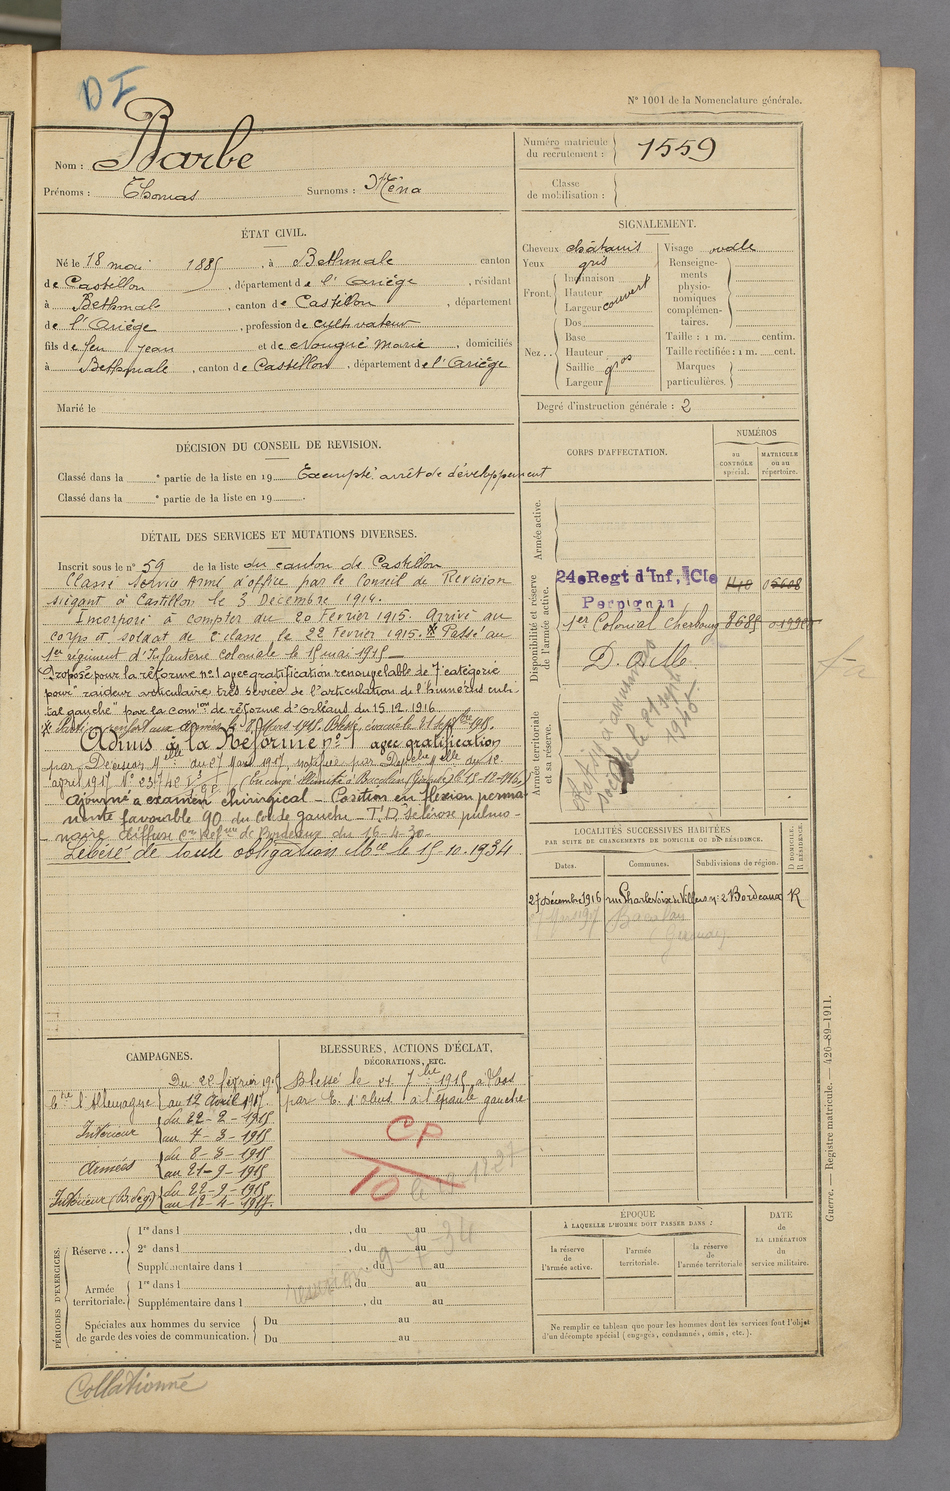 DI
N° 1001 de la Nomenclature générale.
Nom : Barbe
Prénoms : Thomas Surnoms : Ména
Numéro matricule du recrutement : 1559
Classe de mobilisation :
ÉTAT CIVIL.
Né le 18 mai 1885, à Bethmale canton
de Castillon, département de l'Ariège, résidant
à Bethmale, canton de Castillon, département
de l'Ariège, profession de cultivateur
fils de feu Jean et de Nougué Marie, domiciliés
à Bethmale, canton de Castillon, département de l'Ariège
Marié le
SIGNALEMENT.
Cheveux châtains
Yeux gris
Front. Inclinaison
Hauteur
Largeur couvert
Nez.. Dos
Base
Hauteur
Saillie gros
Largeur
Visage ovale
Renseignements physionomiques complémentaires.
Taille : 1 m. centim.
Taille rectifiée : 1 m. cent.
Marques particulières.
Degré d'instruction générale : 2
DÉCISION DU CONSEIL DE REVISION.
Classé dans la e partie de la liste en 19 Exempté arrêt de développement
Classé dans la e partie de la liste en 19
CORPS D'AFFECTATION.
NUMÉROS
au CONTRÔLE spécial.
MATRICULE ou au répertoire.
Armée active.
Disponibilité et réserve de l'armée active.
24e Regt d'Inf, Cie 05608
Perpignan
1er Colonial Cherbourg 8685
Armée territoriale et sa réserve.
DÉTAIL DES SERVICES ET MUTATIONS DIVERSES.
Inscrit sous le n° 59 de la liste du canton de Castillon
Classé Service Armé d'office par le Conseil de Revision
siégant à Castillon le 3 Décembre 1914.
Incorporé à compter du 20 Fevrier 1915. Arrivé au
corps et soldat de 2e classe, le 22 Fevrier 1915. * Passé au
1er régiment d'Infanterie coloniale le 15 mai 1915
Proposé pour la réforme n°1 avec gratification renouvelable de 7e catégorie
pour "raideur articulaire très serrée de l'articulation de l'humérus cubital gauche" par la comon de réforme d'Orléans du 15.12.1916.
* Parti en renfort aux Armées le 8 Mars 1915. Blessé, évacué le 21 septbre 1915.
Admis à la Réforme n° 1 avec gratification
par Décision Mlle du 27 Mars 1917, notifiée par Depêche Mlle du 12
avril 1917 N° 237 (En congé illimité à Bacalan (Gironde) le 15-12-1916)
Ajourné a examen chirurgical - Position en flexion permanente favorable 90 du coude gauche - T.D. Sclérose pulmonaire diffuse Con Réfme de Bordeaux du 16-4-30-
Libéré de toute obligation Mre le 15.10.1934
LOCALITÉS SUCCESSIVES HABITÉES
PAR SUITE DE CHANGEMENTS DE DOMICILE OU DE RÉSIDENCE.
D DOMICILE. R RÉSIDENCE.
Dates. Communes. Subdivisions de région.
27 Décembre 1916 rue Charlevoix de Villers n: 2 Bordeaux R
Mars 1917 Bacalan
(Gironde)
CAMPAGNES.
Ctre l'Allemagne Du 22 février 1915
au 12 Avril 1917
Intérieur du 22-2-1915
au 7-3-1915
Armées du 8-3-1915
au 21-9-1915
Intérieur (B. de g.) du 22-9-1915
au 12-4-1917.
BLESSURES, ACTIONS D'ÉCLAT,
DÉCORATIONS, ETC.
Blessé le 21 7bre 1915 à
par E. d'obus à l'épaule gauche
CP
10
PÉRIODES D'EXERCICES.
Réserve... 1re dans l , du au
2e dans l , du au
Supplémentaire dans l , du au
Armée territoriale. 1re dans l , du au
Supplémentaire dans l , du au
Spéciales aux hommes du service de garde des voies de communication. Du au
Du au
9-7-34
ÉPOQUE
À LAQUELLE L'HOMME DOIT PASSER DANS :
la réserve de l'armée active.
l'armée territoriale.
la réserve de l'armée territoriale
DATE de LA LIBÉRATION du service militaire.
Ne remplir ce tableau que pour les hommes dont les services font l'objet
d'un décompte spécial (engagés, condamnés, omis, etc.).
Guerre. — Registre matricule. — 426-89-1911.
Collationné